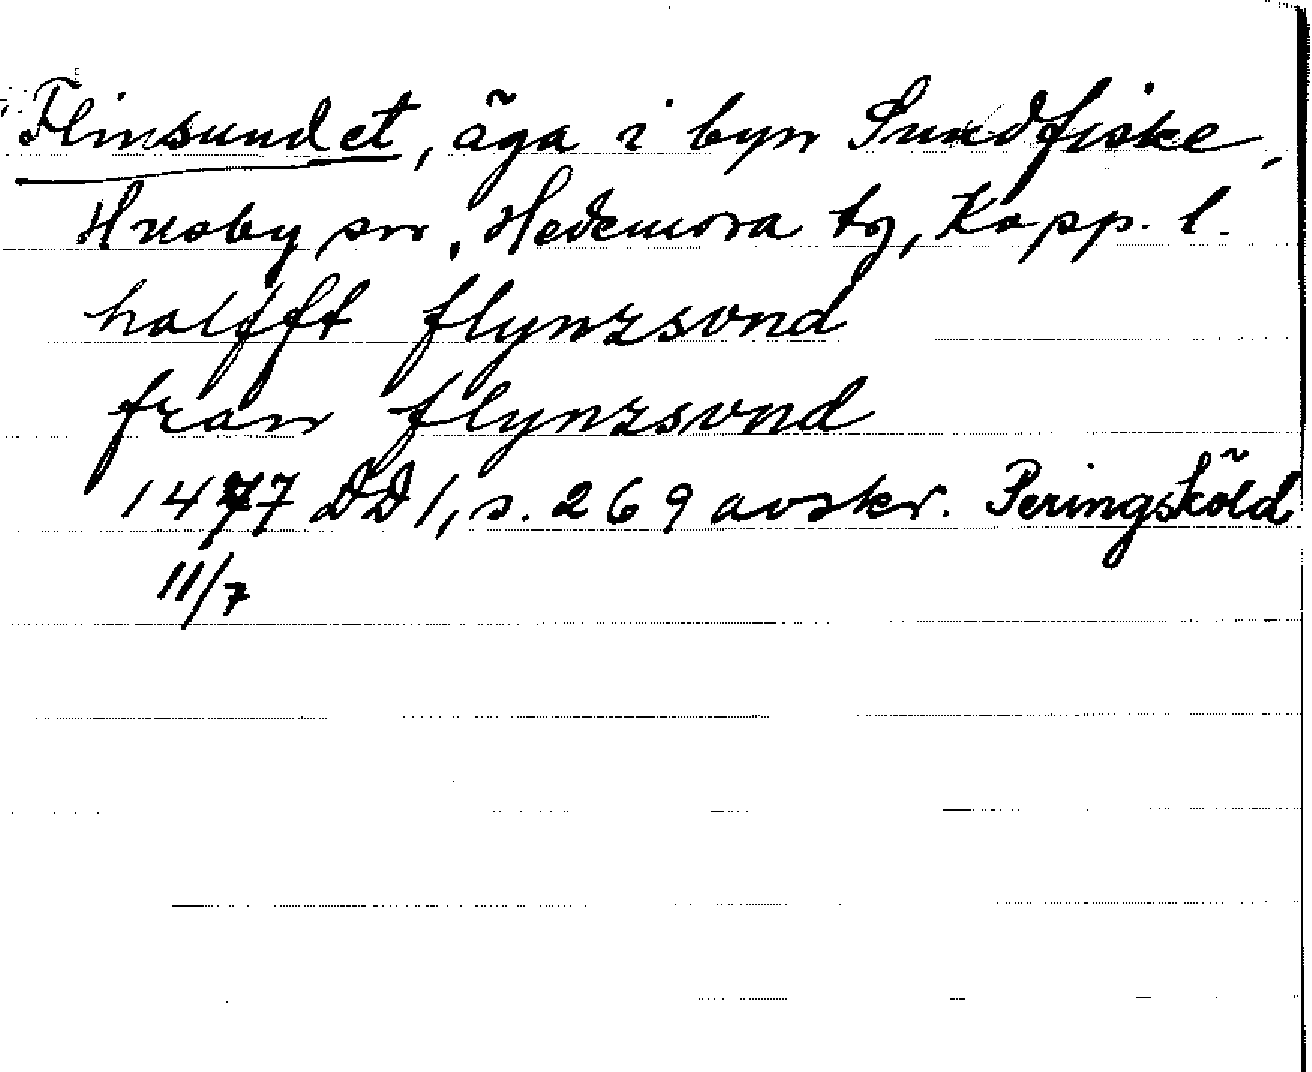 Flinsundet, äga i byn Sundfiske,
Husby sn, Hedemora tg, Kopp. l.
halfft flynzsvnd
fran flynzsvnd
1477 DD 1, s. 269 avskr. Peringsköld
11/7